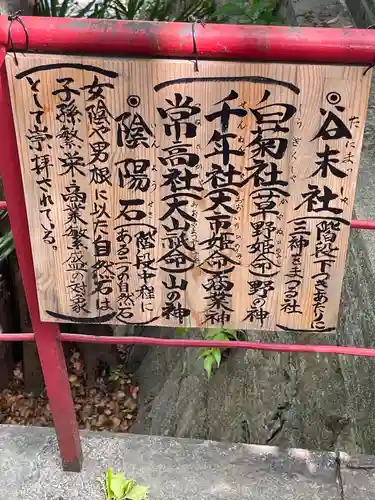 ◎谷末社(階段下つきあたりに
三神をまつる社)
白菊社(草野姫命)野の神
千年社(大市姫命)商業の神
常高社(大山祇命)山の神
◎陰陽石(階段中程に
ある二つの自然石)
女陰や男根に似た自然石は
子孫繁栄、商業繁盛の対象
として崇拝されている。